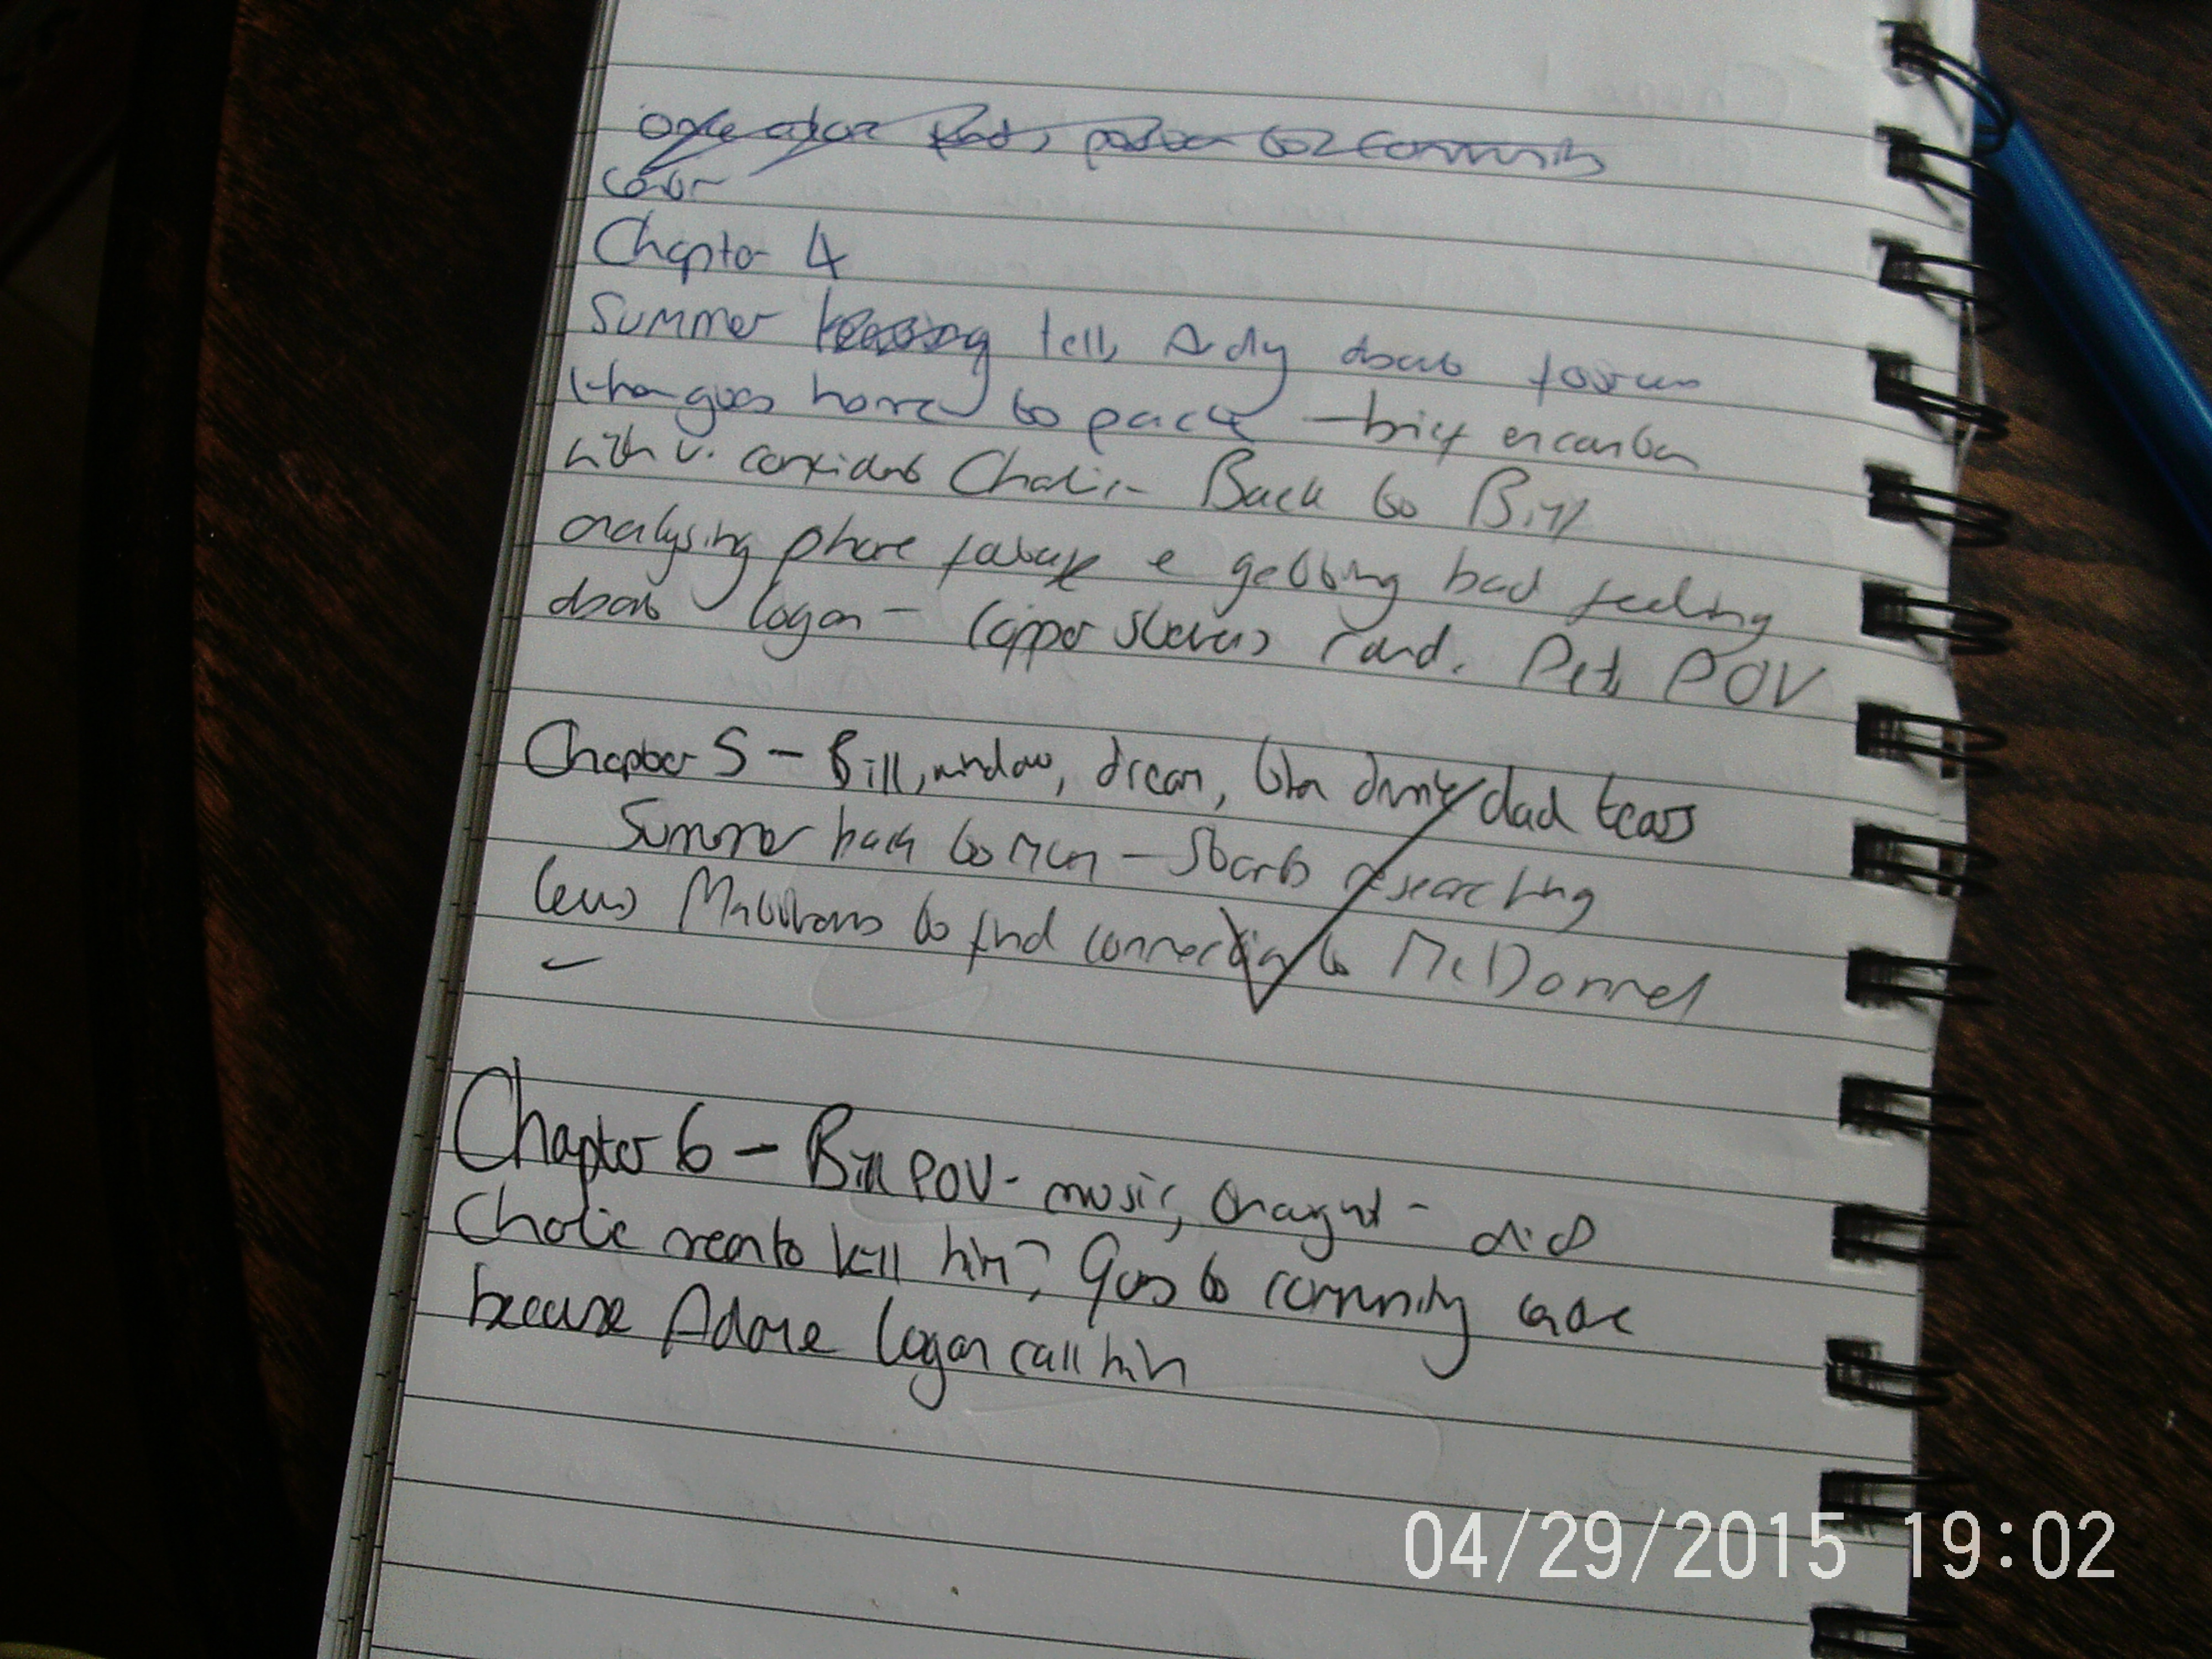 Chapter 4
Summer tells Ady about forum
then goes home to pack - brief encounter
with v. confident Charlie - Back to Bill
analysing phone footage & getting bad feeling
about logan - (upper sleeves) rand. Pet POV
Chapter 5 - Bill, window, dream, then drunk dad tears
Summer back to mcn - Starts researching
lewis Matthews to find connection to McDonnel
Chapter 6 - Bill POV - music, thought - did
Charlie mean to kill him? Goes to community cntre
because Adame Logan call him
04/29/2015 19:02